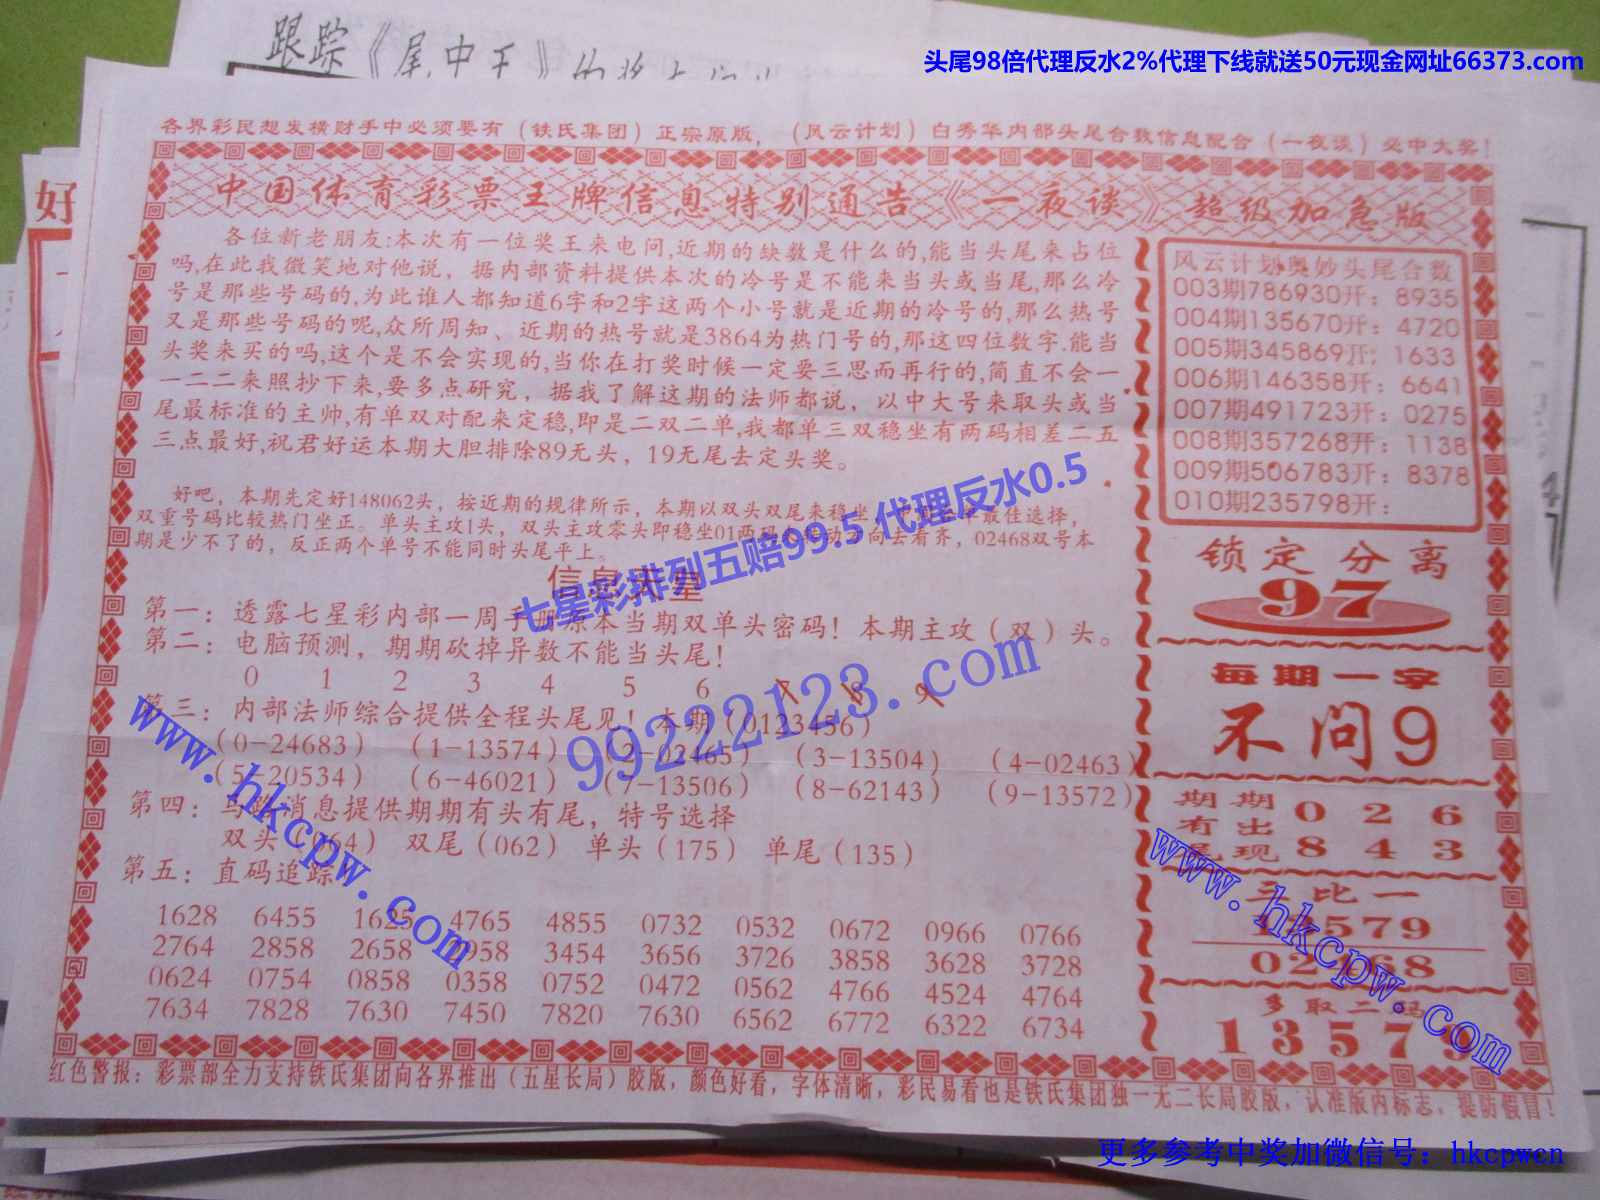 跟踪《尾中王》
头尾98倍代理反水2%代理下线就送50元现金网址66373.com
各界彩民想发横财手中必须要有（铁氏集团）正宗原版，（风云计划）白秀华内部头尾合数信息配合（一夜谈）必中大奖！
好
中国体育彩票王牌信息特别通告《一夜谈》超级加急版
各位新老朋友:本次有一位奖王来电问,近期的缺数是什么的,能当头尾来占位
吗,在此我微笑地对他说，据内部资料提供本次的冷号是不能来当头或当尾,那么冷
号是那些号码的,为此谁人都知道6字和2字这两个小号就是近期的冷号的,那么热号
又是那些号码的呢,众所周知、近期的热号就是3864为热门号的,那这四位数字.能当
头奖来买的吗,这个是不会实现的,当你在打奖时候一定要三思而再行的,简直不会一
一二二来照抄下来,要多点研究，据我了解这期的法师都说，以中大号来取头或当
尾最标准的主帅,有单双对配来定稳,即是二双二单,我都单三双稳坐有两码相差二五
三点最好,祝君好运本期大胆排除89无头，19无尾去定头奖。
好吧，本期先定好148062头，按近期的规律所示，本期以双头双尾来稳坐 最佳选择，
双重号码比较热门坐正。单头主攻1头，双头主攻零头即稳坐01两码 动方向去看齐，02468双号本
期是少不了的，反正两个单号不能同时头尾平上。
七星彩排列五赔99.5 代理反水0.5
信息天皇
第一：透露七星彩内部一周手册原本当期双单头密码！本期主攻（双）头。
第二：电脑预测，期期砍掉异数不能当头尾！
0 1 2 3 4 5 6 7 8 9
第三：内部法师综合提供全程头尾见！本期（0123456）
（0-24683） （1-13574） （2-02465） （3-13504） （4-02463）
（5-20534） （6-46021） （7-13506） （8-62143） （9-13572）
第四：马路消息提供期期有头有尾，特号选择
双头（064） 双尾（062） 单头（175） 单尾（135）
第五：直码追踪
1628 6455 1625 4765 4855 0732 0532 0672 0966 0766
2764 2858 2658 0958 3454 3656 3726 3858 3628 3728
0624 0754 0858 0358 0752 0472 0562 4766 4524 4764
7634 7828 7630 7450 7820 7630 6562 6772 6322 6734
99222123.com
www.hkcpw.com
风云计划奥妙头尾合数
003期786930开：8935
004期135670开：4720
005期345869开：1633
006期146358开：6641
007期491723开：0275
008期357268开：1138
009期506783开：8378
010期235798开：
锁定分离
97
每期一字
不问9
期期 0 2 6
有出
尾现 8 4 3
三比一
13579
02468
多取二码
13579
www.hkcpw.com
红色警报：彩票部全力支持铁氏集团向各界推出（五星长局）胶版，颜色好看，字体清晰，彩民易看也是铁氏集团独一无二长局胶版，认准版内标志，提防假冒！
更多参考中奖加微信号：hkcpwcn